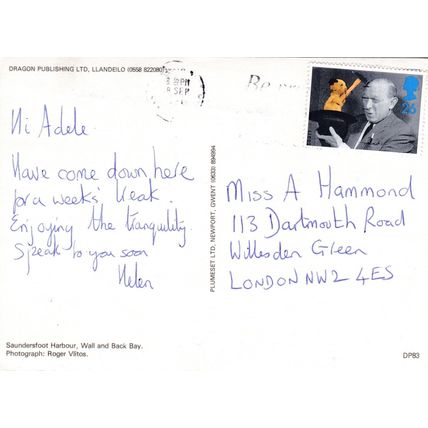 DRAGON PUBLISHING LTD, LLANDEILO (0558 822080)
Hi Adele
Have come down here
for a weeks' break.
Enjoying the tranquility.
Speak to you soon
Helen
PLUMESET LTD, NEWPORT, GWENT (0633) 894894
Miss A Hammond
113 Dartmouth Road
Willesden Green
LONDON NW2 4ES
Saundersfoot Harbour, Wall and Back Bay.
Photograph: Roger Vlitos.
DP83